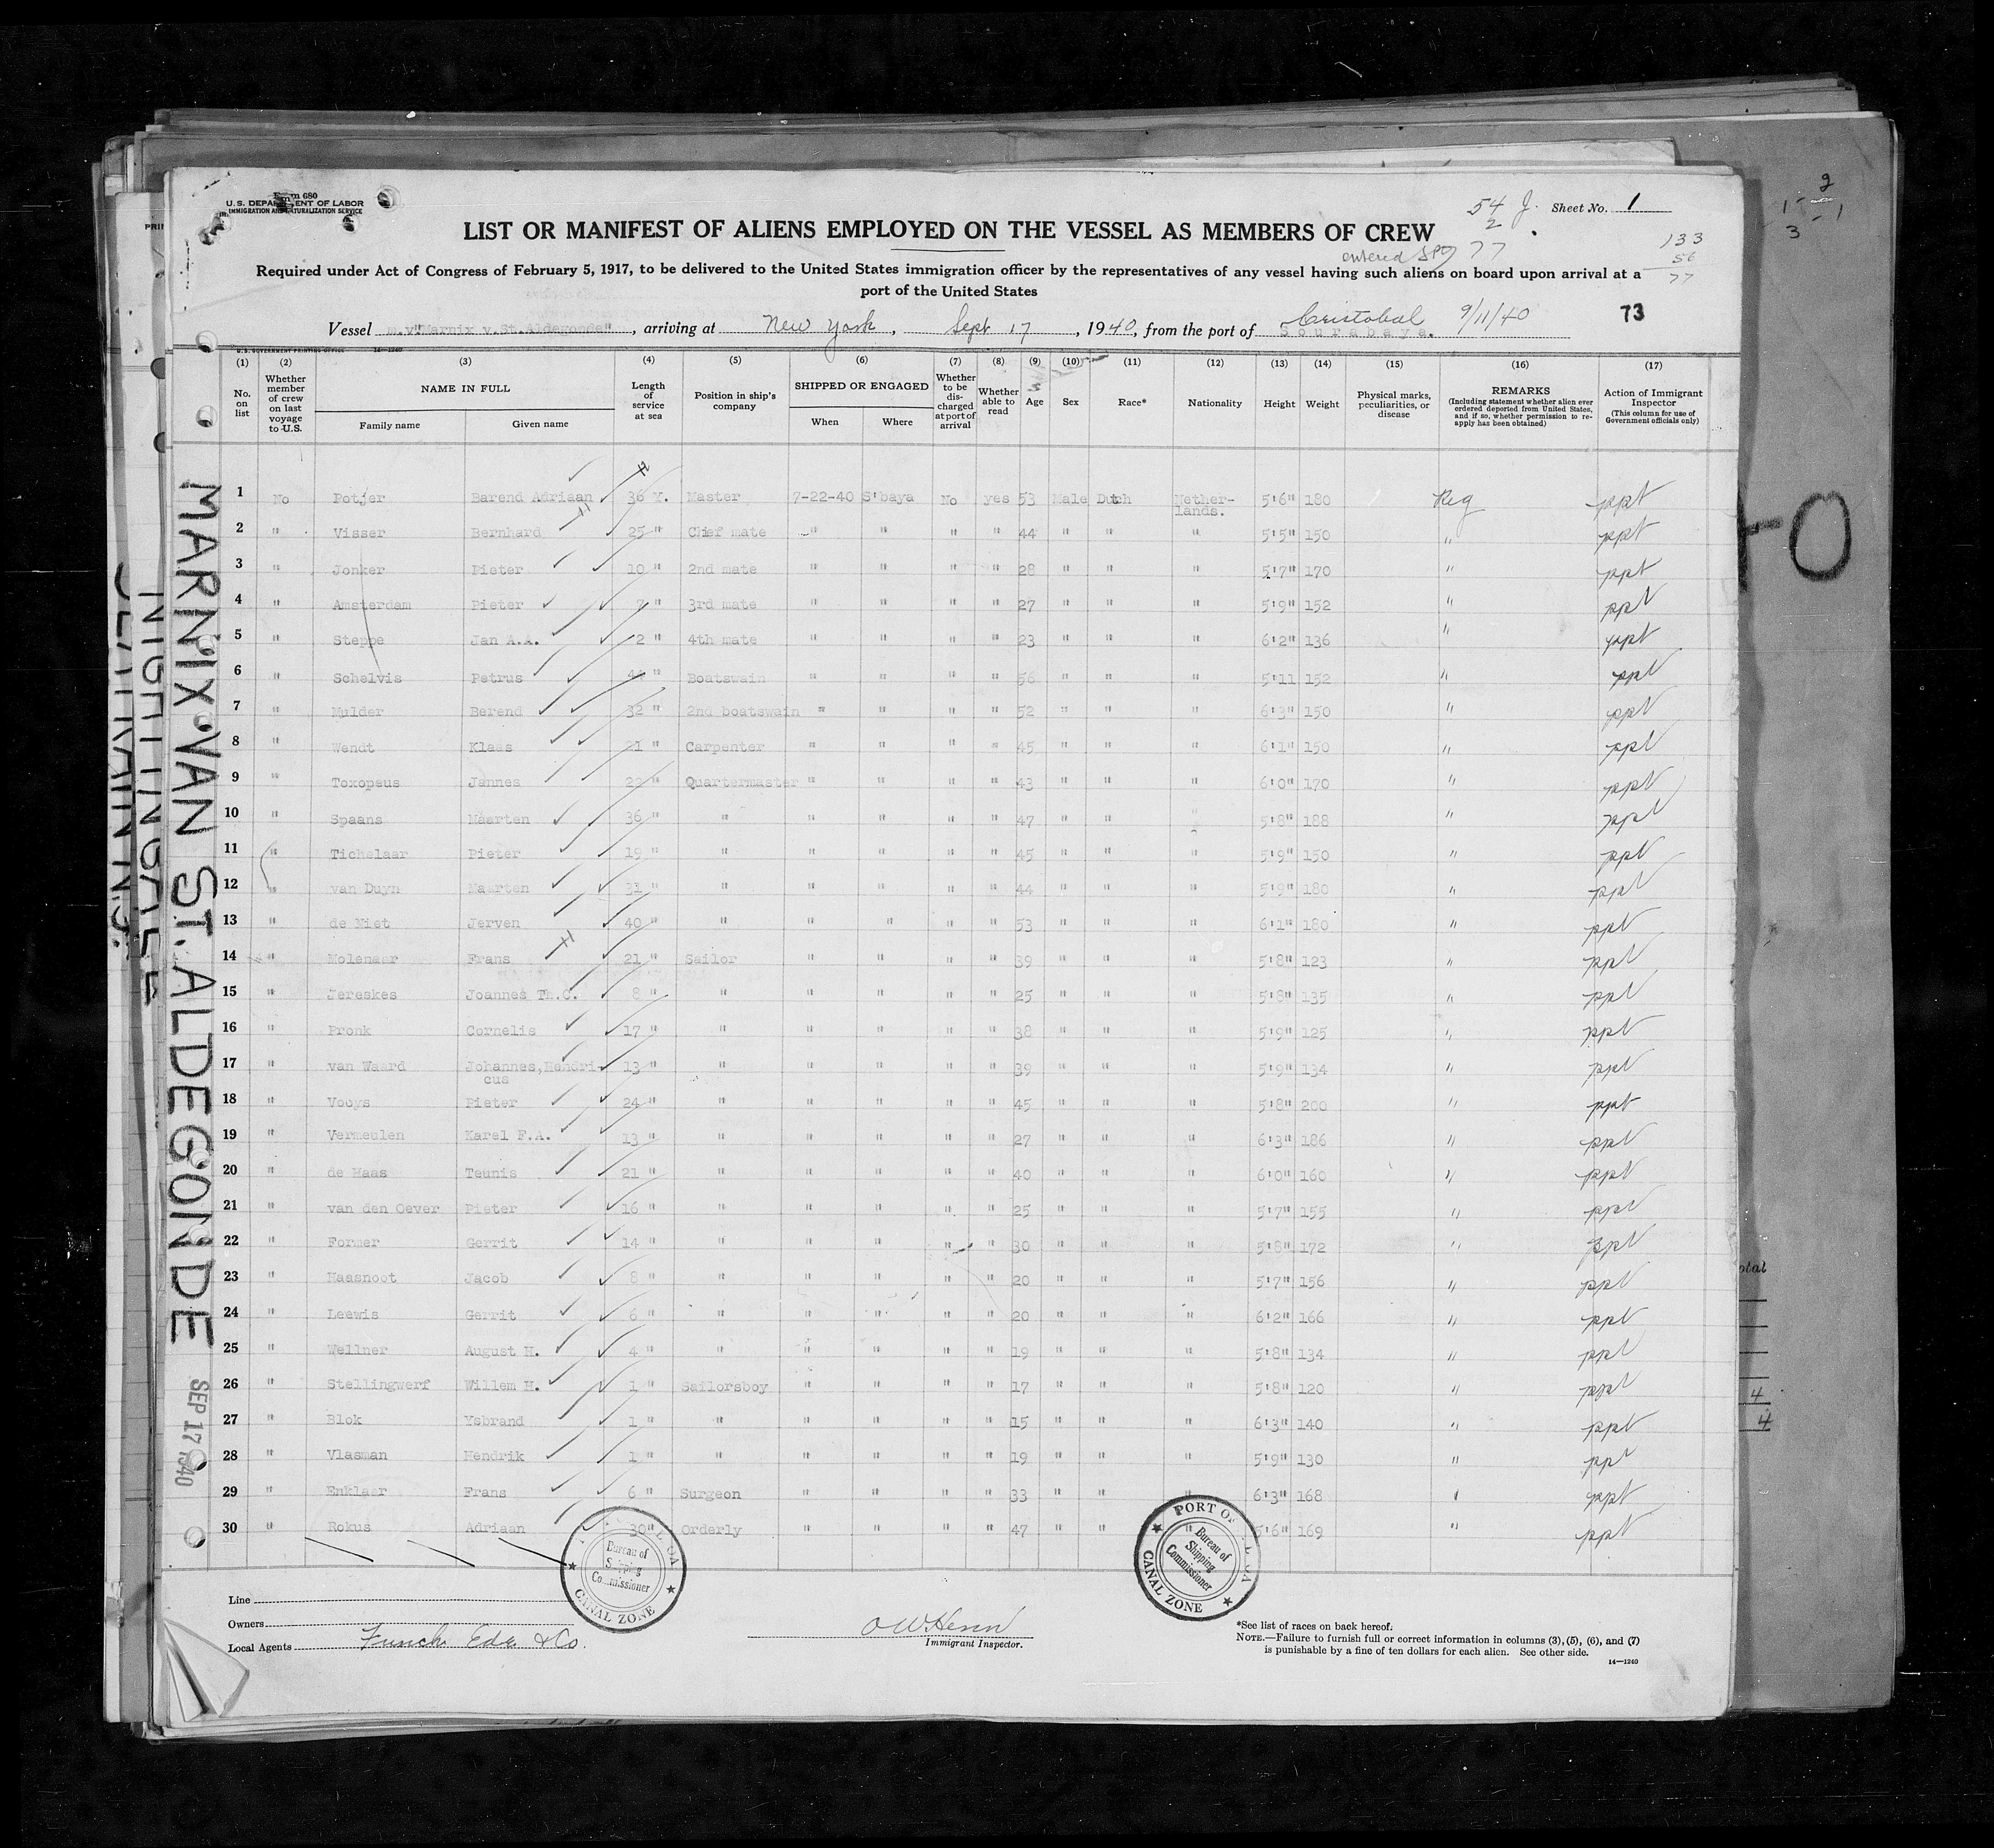 Form 680
U.S. DEPARTMENT OF LABOR
IMMIGRATION AND NATURALIZATION SERVICE
54 J. Sheet No. 1
2
LIST OR MANIFEST OF ALIENS EMPLOYED ON THE VESSEL AS MEMBERS OF CREW
entered 77
133
56
77
Required under Act of Congress of February 5, 1917, to be delivered to the United States immigration officer by the representatives of any vessel having such aliens on board upon arrival at a
port of the United States
73
Vessel m.v."Marnix v.St.Aldegonde", arriving at New York, Sept 17, 1940, from the port of Cristobal 9/11/40
Sourabaya.
U.S. GOVERNMENT PRINTING OFFICE 14-1240
(1) (2) (3) (4) (5) (6) (7) (8) (9) (10) (11) (12) (13) (14) (15) (16) (17)
No. on list
Whether member of crew on last voyage to U.S.
NAME IN FULL
Family name Given name
Length of service at sea
Position in ship's company
SHIPPED OR ENGAGED
When Where
Whether to be discharged at port of arrival
Whether able to read
Age
Sex
Race*
Nationality
Height
Weight
Physical marks, peculiarities, or disease
REMARKS
(Including statement whether alien ever ordered deported from United States, and if so, whether permission to reapply has been obtained)
Action of Immigrant Inspector
(This column for use of Government officials only)
1 No Potjer Barend Adriaan 36 Y. Master 7-22-40 S'baya No yes 53 Male Dutch Nether-lands. 5'6" 180 Reg ppt
2 " Visser Bernhard 25 " Chief mate " " " " 44 " " " 5'5" 150 " ppt
3 " Jonker Pieter 10 " 2nd mate " " " " 28 " " " 5'7" 170 " ppt
4 " Amsterdam Pieter 7 " 3rd mate " " " " 27 " " " 5'9" 152 " ppt
5 " Steppe Jan A.A. 2 " 4th mate " " " " 23 " " " 6'2" 136 " ppt
6 " Schelvis Petrus 44 " Boatswain " " " " 56 " " " 5'11 152 " ppt
7 " Mulder Berend 32 " 2nd boatswain " " " " 52 " " " 6'3" 150 " ppt
8 " Wendt Klaas 21 " Carpenter " " " " 45 " " " 6'1" 150 " ppt
9 " Toxopeus Jannes 22 " Quartermaster " " " " 43 " " " 6'0" 170 " ppt
10 " Spaans Maarten 36 " " " " " " 47 " " " 5'8" 188 " ppt
11 " Tichelaar Pieter 19 " " " " " " 45 " " " 5'9" 150 " ppt
12 " van Duyn Maarten 31 " " " " " " 44 " " " 5'9" 180 " ppt
13 " de Niet Jerven 40 " " " " " " 53 " " " 6'1" 180 " ppt
14 " Molenaar Frans 21 " Sailor " " " " 39 " " " 5'8" 123 " ppt
15 " Jereskes Joannes Th.C. 8 " " " " " " 25 " " " 5'8" 135 " ppt
16 " Pronk Cornelis 17 " " " " " " 38 " " " 5'9" 125 " ppt
17 " van Waard Johannes,Hendricus 13 " " " " " " 39 " " " 5'9" 134 " ppt
18 " Vooys Pieter 24 " " " " " " 45 " " " 5'8" 200 " ppt
19 " Vermeulen Karel F.A. 13 " " " " " " 27 " " " 6'3" 186 " ppt
20 " de Haas Teunis 21 " " " " " " 40 " " " 6'0" 160 " ppt
21 " van den Oever Pieter 16 " " " " " " 25 " " " 5'7" 155 " ppt
22 " Former Gerrit 14 " " " " " " 30 " " " 5'8" 172 " ppt
23 " Haasnoot Jacob 8 " " " " " " 20 " " " 5'7" 156 " ppt
24 " Leewis Gerrit 6 " " " " " " 20 " " " 6'2" 166 " ppt
25 " Wellner August H. 4 " " " " " " 19 " " " 5'8" 134 " ppt
26 " Stellingwerf Willem H. 1 " Sailorsboy " " " " 17 " " " 5'8" 120 " ppt
27 " Blok Ysbrand 1 " " " " " " 15 " " " 6'3" 140 " ppt
28 " Vlasman Hendrik 1 " " " " " " 19 " " " 5'9" 130 " ppt
29 " Enklaar Frans 6 " Surgeon " " " " 33 " " " 6'3" 168 " ppt
30 " Rokus Adriaan 30 " Orderly " " " " 47 " " " 5'6" 169 " ppt
MARNIX VAN ST. ALDEGONDE
SEP 17 1940
Bureau of Shipping Commissioner
CANAL ZONE
PORT OF
Bureau of Shipping Commissioner
CANAL ZONE
Line
Owners
Local Agents Funch Edye & Co.
O W Henn
Immigrant Inspector.
*See list of races on back hereof.
NOTE.—Failure to furnish full or correct information in columns (3), (5), (6), and (7)
is punishable by a fine of ten dollars for each alien. See other side.
14—1240